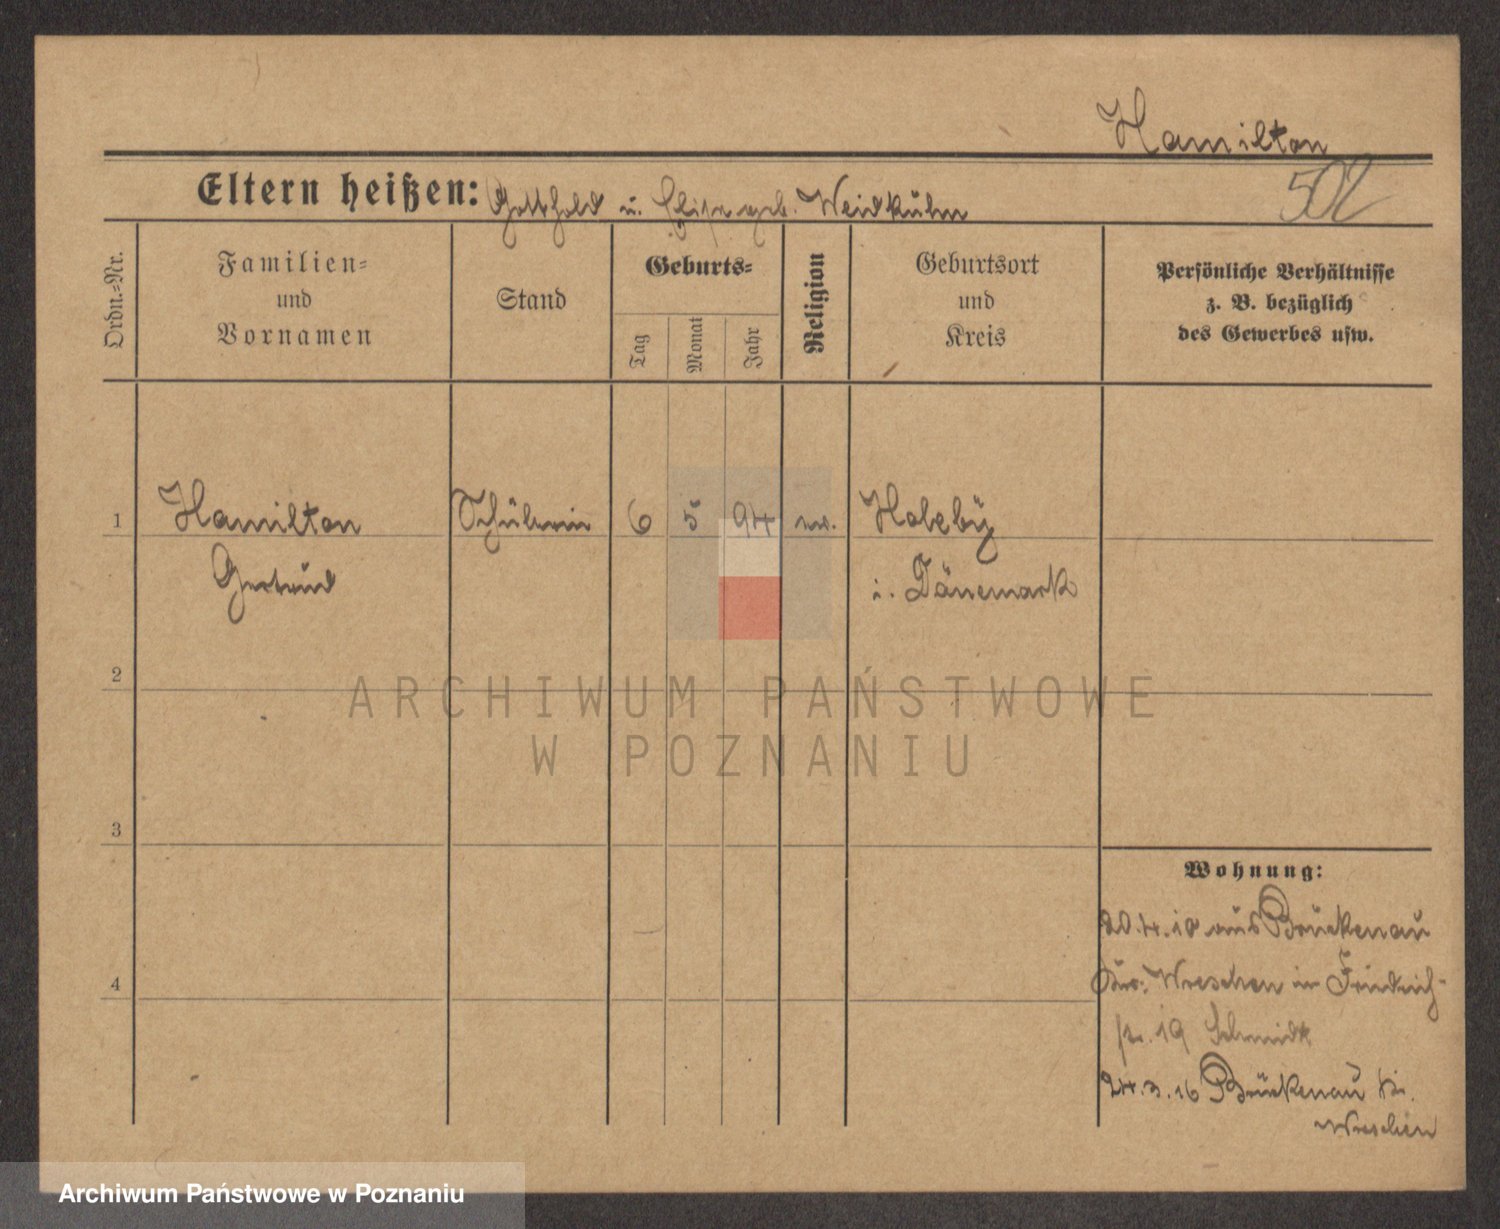 Hamilton
Eltern heißen: Gotthold u. Elise geb. Weidkuhn
502
Ordn.-Nr.
Familien-
und
Vornamen
Stand
Geburts-
Tag
Monat
Jahr
Religion
Geburtsort
und
Kreis
Persönliche Verhältnisse
z. B. bezüglich
des Gewerbes usw.
1
Hamilton
Schülerin
6
5
94
ev.
Holeby
Gertrud
i. Dänemark
2
ARCHIWUM PAŃSTWOWE
W POZNANIU
3
Wohnung:
20.4.10 aus Brückenau
Wreschen in Friedrich-
str. 19 Schmidt
4
24.3.16 Brückenau Kr.
Wreschen
Archiwum Państwowe w Poznaniu